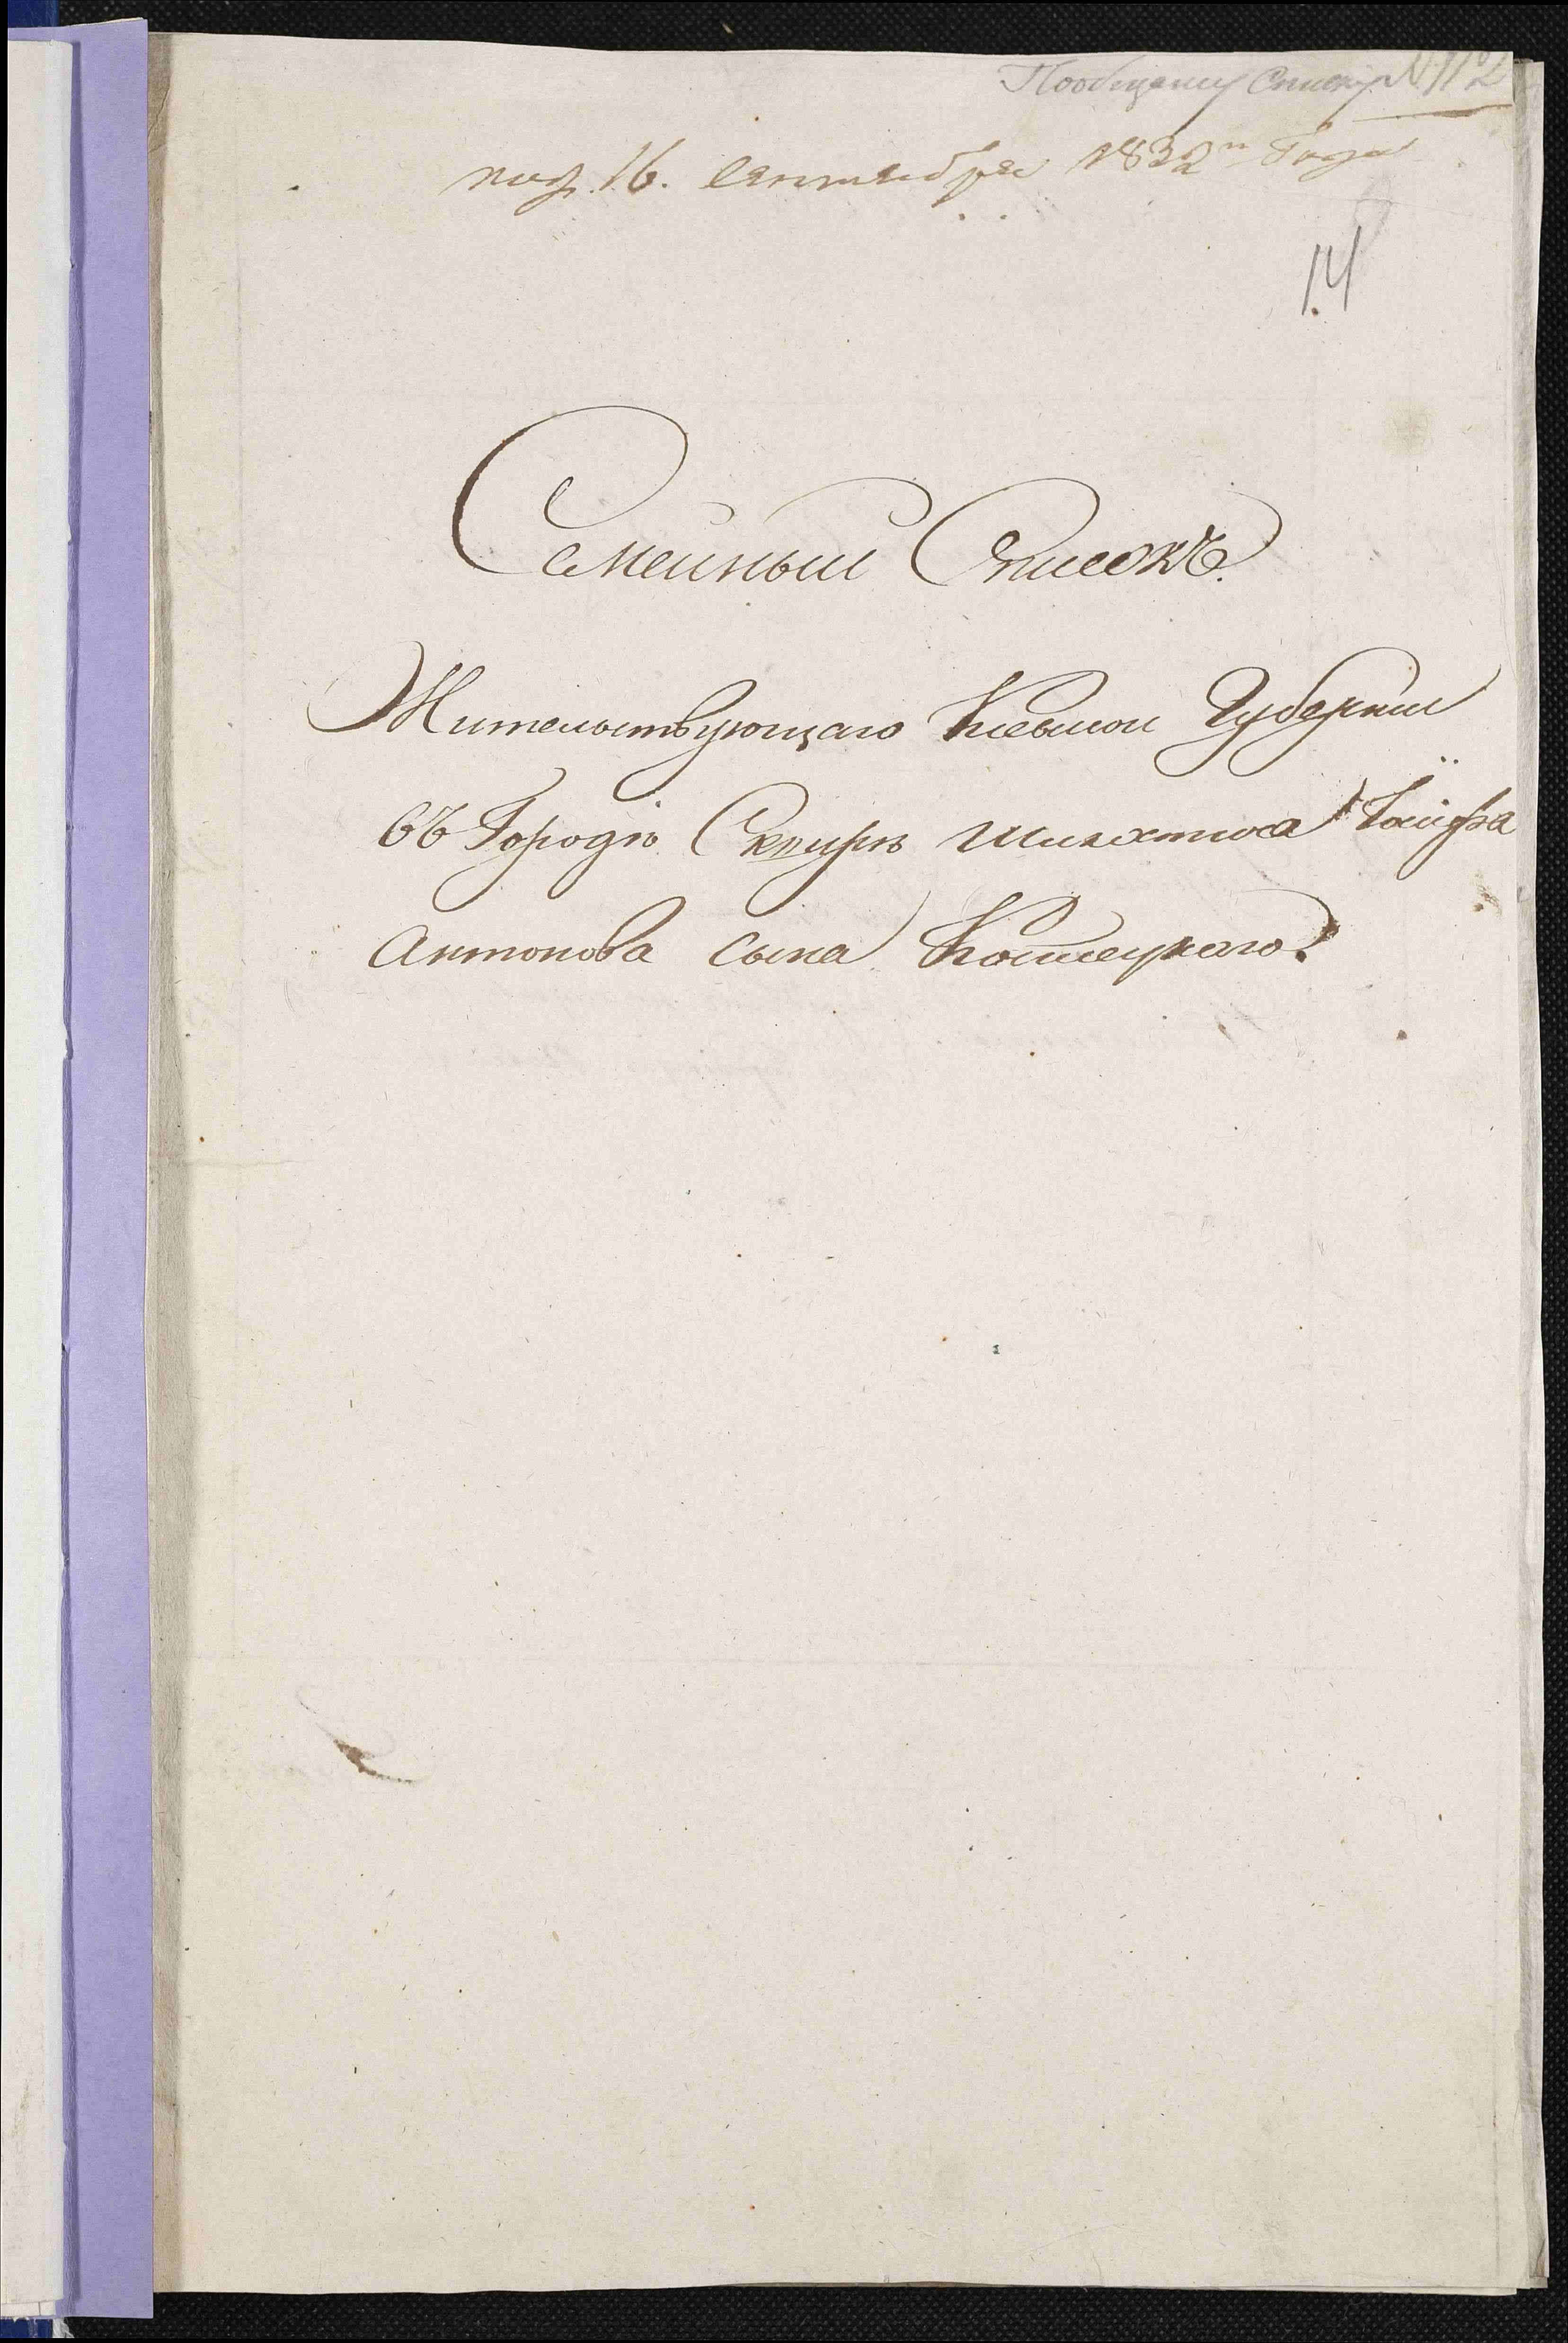 Пообщему Списку N 112
под. 16. Сентября 1832го Года
14
Семейный Списокъ.
Жительствующаго Киевской Губернии
въ Городѣ Сквирѣ Шляхтича Іосифа
Антонова сына